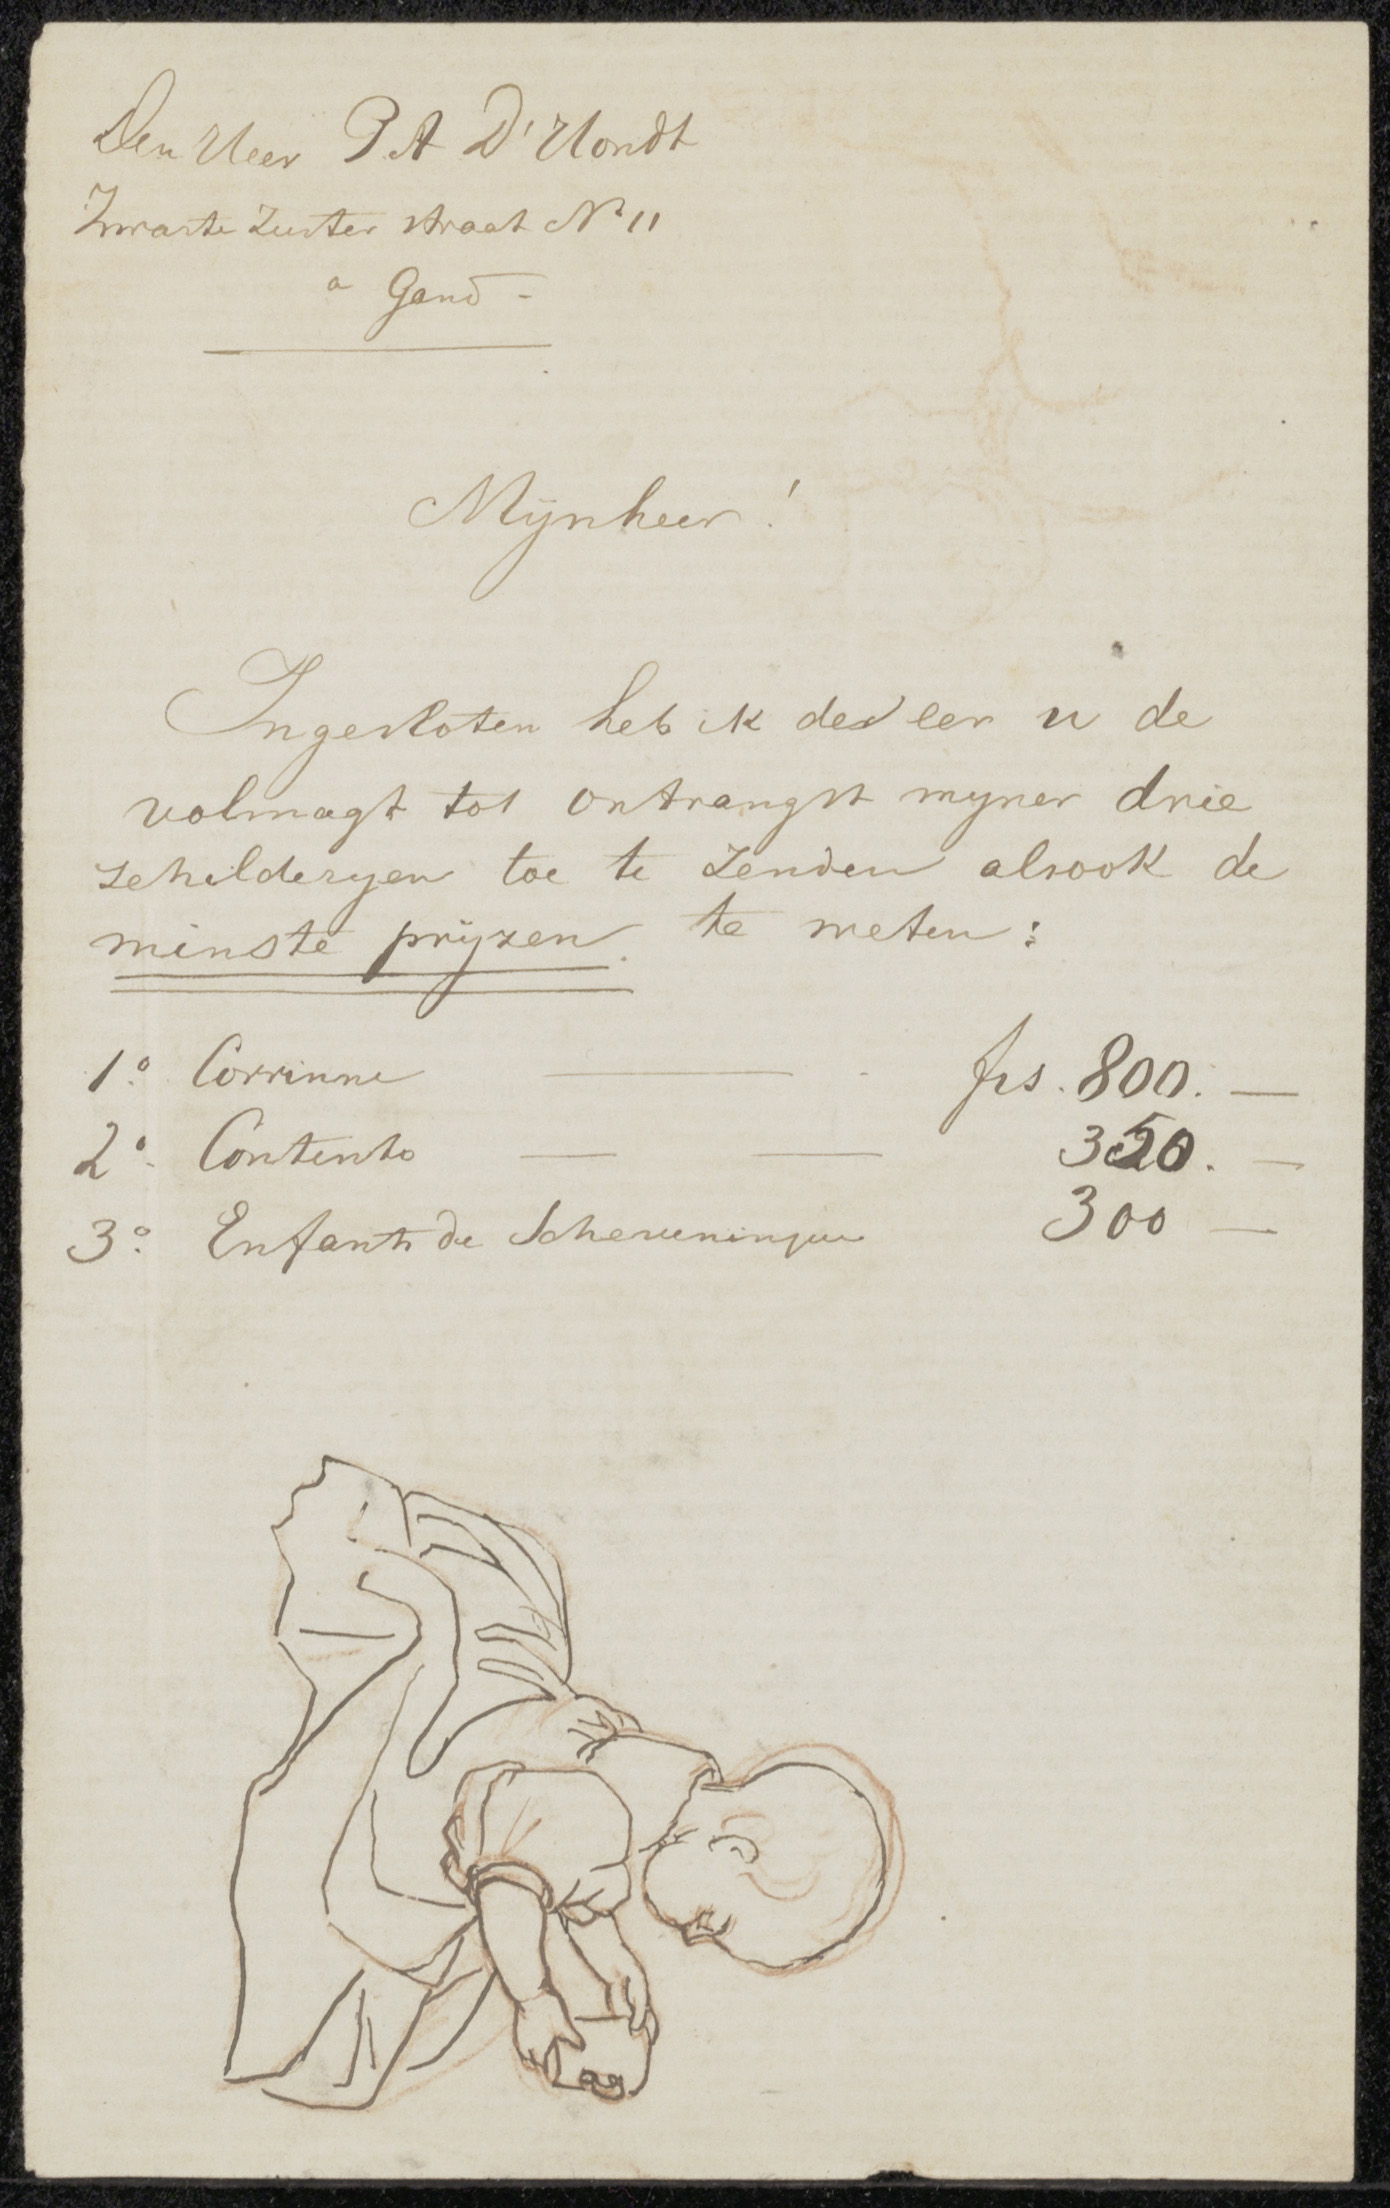 Den Heer P. A D'Hondt
Zwarte Zuster straat No 11
a Gand -
Mijnheer !
Ingesloten heb ik de eer u de
volmagt tot ontvangst myner drie
schilderyen toe te zenden alsook de
minste prijzen te weten :
1o. Corrinne frs. 800. —
2o. Contento 350. —
3o. Enfants de Scheveningue 300 —